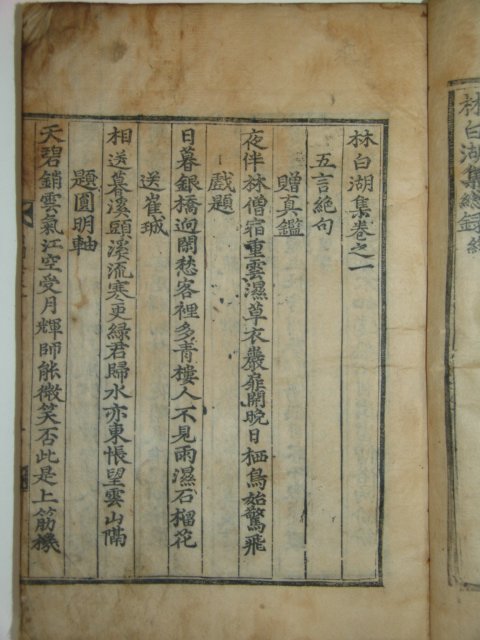 林白湖集緫錄終
林白湖集卷之一
五言絶句
贈真鑑
夜伴林僧宿重雲濕草衣巖扉開晚日栖鳥始驚飛
戱題
日暮銀橋逈閑愁客裡多青樓人不見雨濕石榴花
送崔珹
相送暮溪頭溪流寒更綠君歸水亦東悵望雲山隔
題圓明軸
天碧銷雲氣江空受月輝師能微笑否此是上筋機